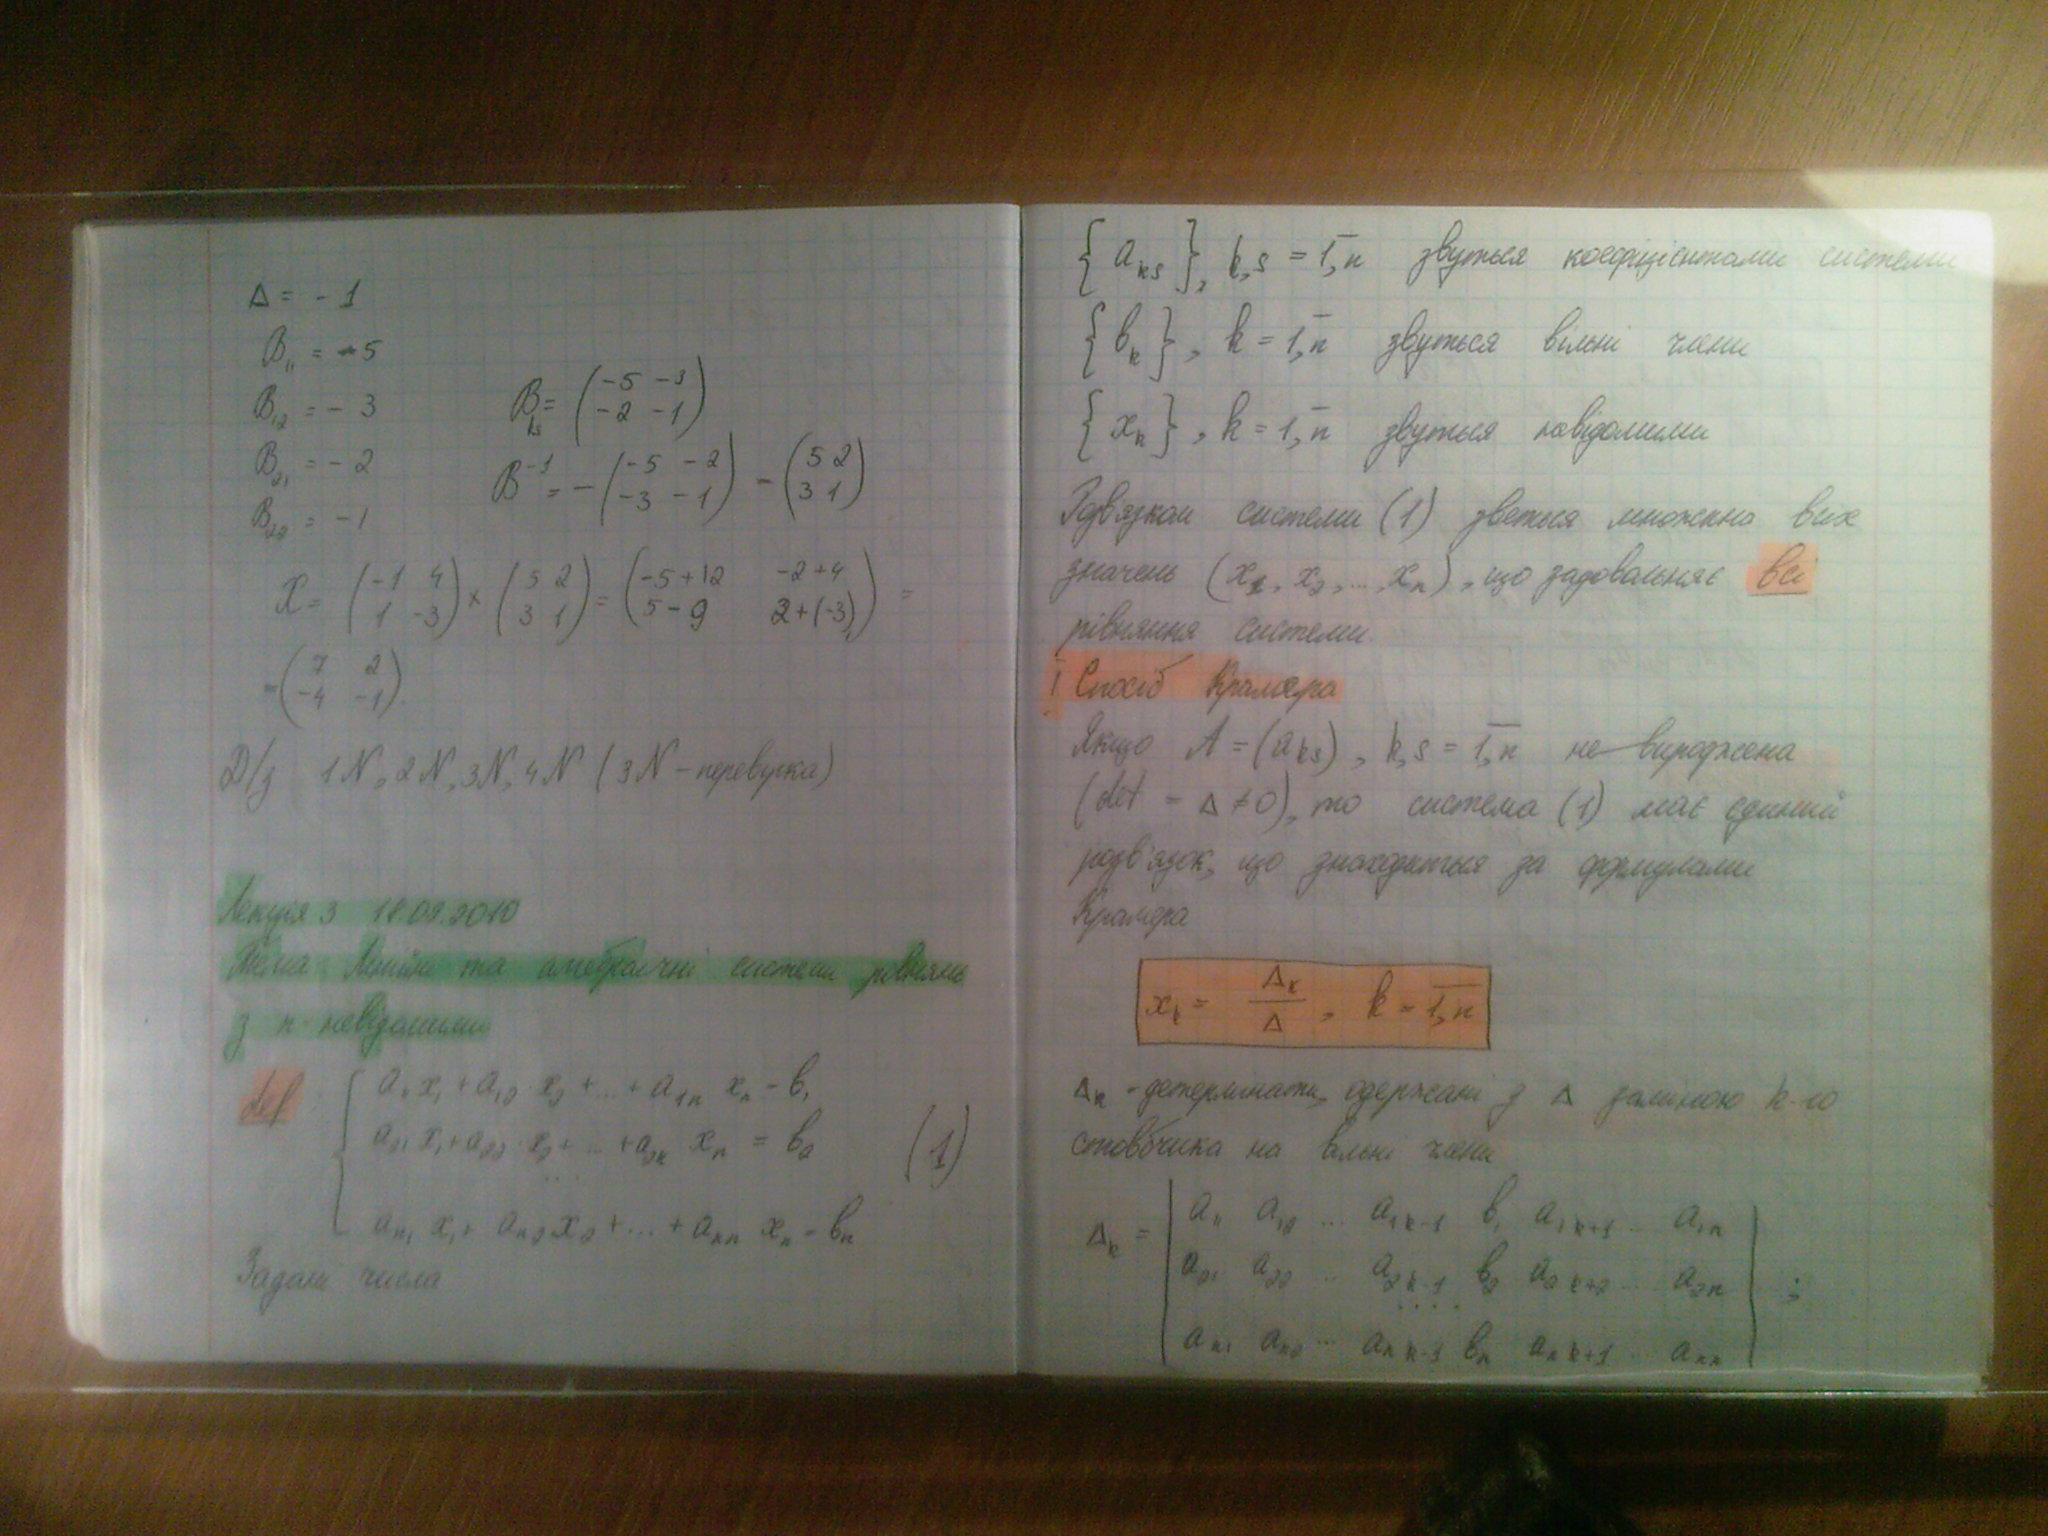 Δ = - 1
B₁₁ = -5
B₁₂ = - 3
B₂₁ = - 2
B₂₂ = - 1
B_ks = (-5 -3; -2 -1)
B⁻¹ = - (-5 -2; -3 -1) = (5 2; 3 1)
X = (-1 4; 1 -3) × (5 2; 3 1) = (-5+12 -2+4; 5-9 2+(-3)) =
= (7 2; -4 -1)
Д/з 1N, 2N, 3N, 4N (3N - перевірка)
Лекція 3 .09.2010
Тема Лінійні та алгебраїчні системи рівнянь
з n невідомими
def: { a₁₁ x₁ + a₁₂ · x₂ + ... + a₁ₙ xₙ = b₁
a₂₁ x₁ + a₂₂ · x₂ + ... + a₂ₙ xₙ = b₂ (1)
...
aₙ₁ x₁ + aₙ₂ x₂ + ... + aₙₙ xₙ = bₙ
Задані числа
{a_ks}, k,s = 1,n звуться коефіцієнтами системи
{b_k}, k = 1,n звуться вільні члени
{x_k}, k = 1,n звуться невідомими
Розв'язком системи (1) зветься множина всіх
значень (x₁, x₂, ..., xₙ), що задовольняє всі
рівняння системи
I Спосіб Крамера
Якщо A = (a_ks), k,s = 1,n не вироджена
(det = Δ ≠ 0), то система (1) має єдиний
розв'язок, що знаходиться за формулами
Крамера
x_k = Δ_k / Δ, k = 1,n
Δ_k - детермінати, одержані з Δ заміною k-го
стовбчика на вільні члени
Δ_k = | a₁₁ a₁₂ ... a₁ k-1 b₁ a₁ k+1 ... a₁ₙ
a₂₁ a₂₂ ... a₂ k-1 b₂ a₂ k+2 ... a₂ₙ ;
....
aₙ₁ aₙ₂ ... aₙ k-1 bₙ aₙ k+1 ... aₙₙ |